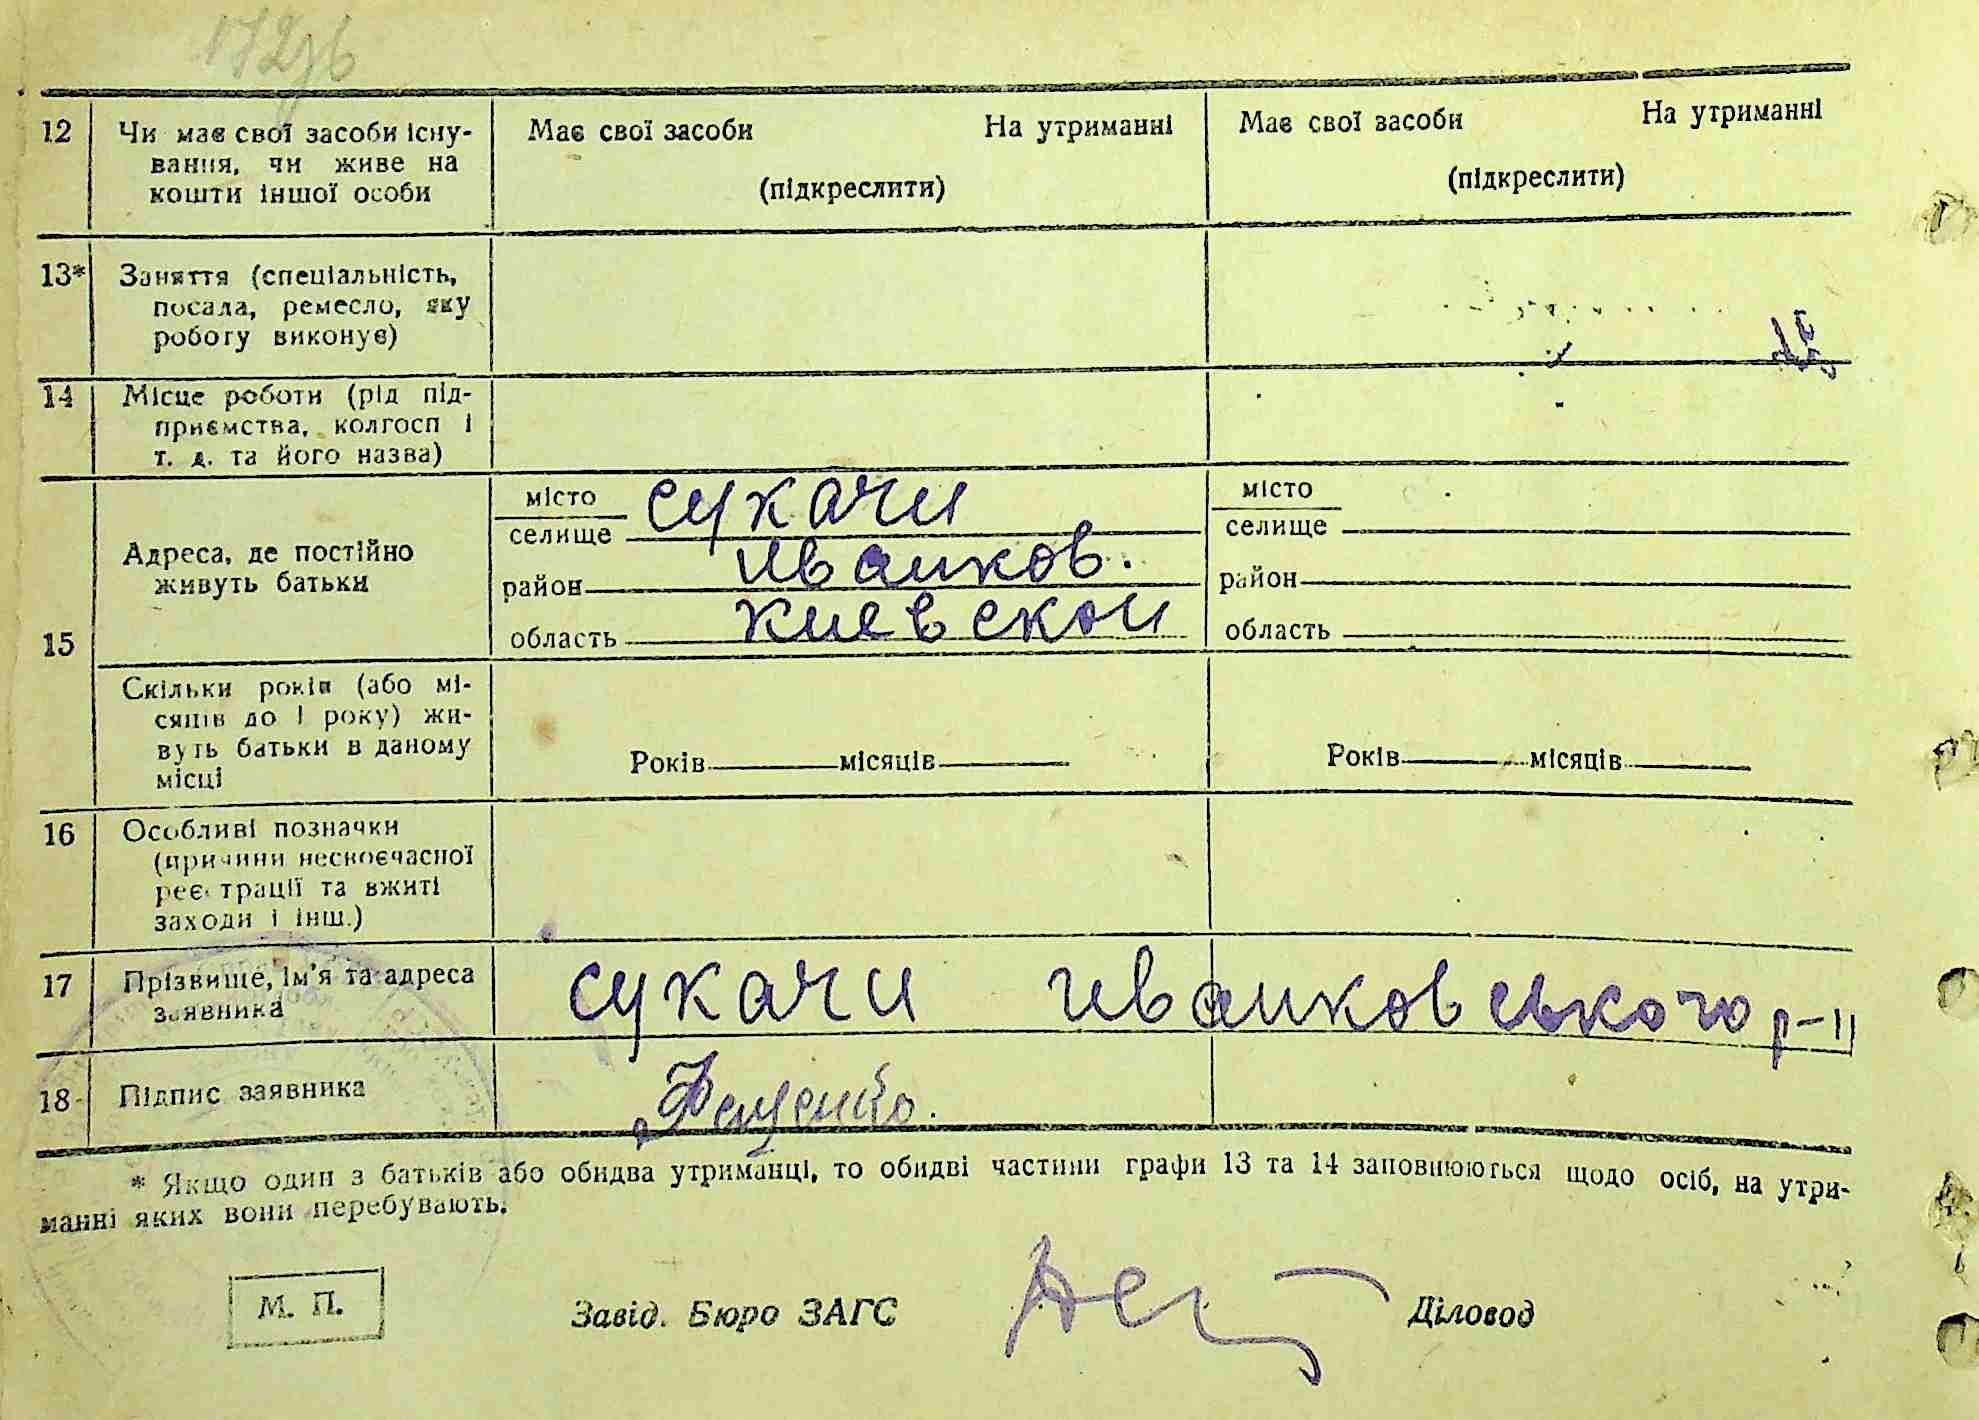 12 Чи має свої засоби існу-
вання, чи живе на
кошти іншої особи
Має свої засоби На утриманні
(підкреслити)
Має свої засоби На утриманні
(підкреслити)
13* Заняття (спеціальність,
посада, ремесло, яку
роботу виконує)
14 Місце роботи (рід під-
приємства, колгосп і
т. д. та його назва)
15
Адреса, де постійно
живуть батьки
місто
селище сукачи
район иванков.
область киевской
місто
селище
район
область
Скільки років (або мі-
сяців до 1 року) жи-
вуть батьки в даному
місці
Років місяців
Років місяців
16 Особливі позначки
(причини несвоєчасної
реєстрації та вжиті
заходи і інш.)
17 Прізвище, ім'я та адреса
заявника
сукачи иванковського р-н
18 Підпис заявника
* Якщо один з батьків або обидва утриманці, то обидві частини графи 13 та 14 заповнюються щодо осіб, на утри-
манні яких вони перебувають.
М. П.
Завід. Бюро ЗАГС
Діловод